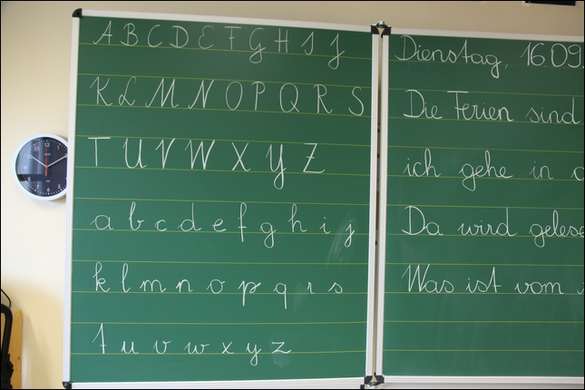 A B C D E F G H I J
K L M N O P Q R S
T U V W X Y Z
a b c d e f g h i j
k l m n o p q r s
t u v w x y z
Dienstag, 16.09
Die Ferien sind
ich gehe in
Da wird gelese
Was ist vom